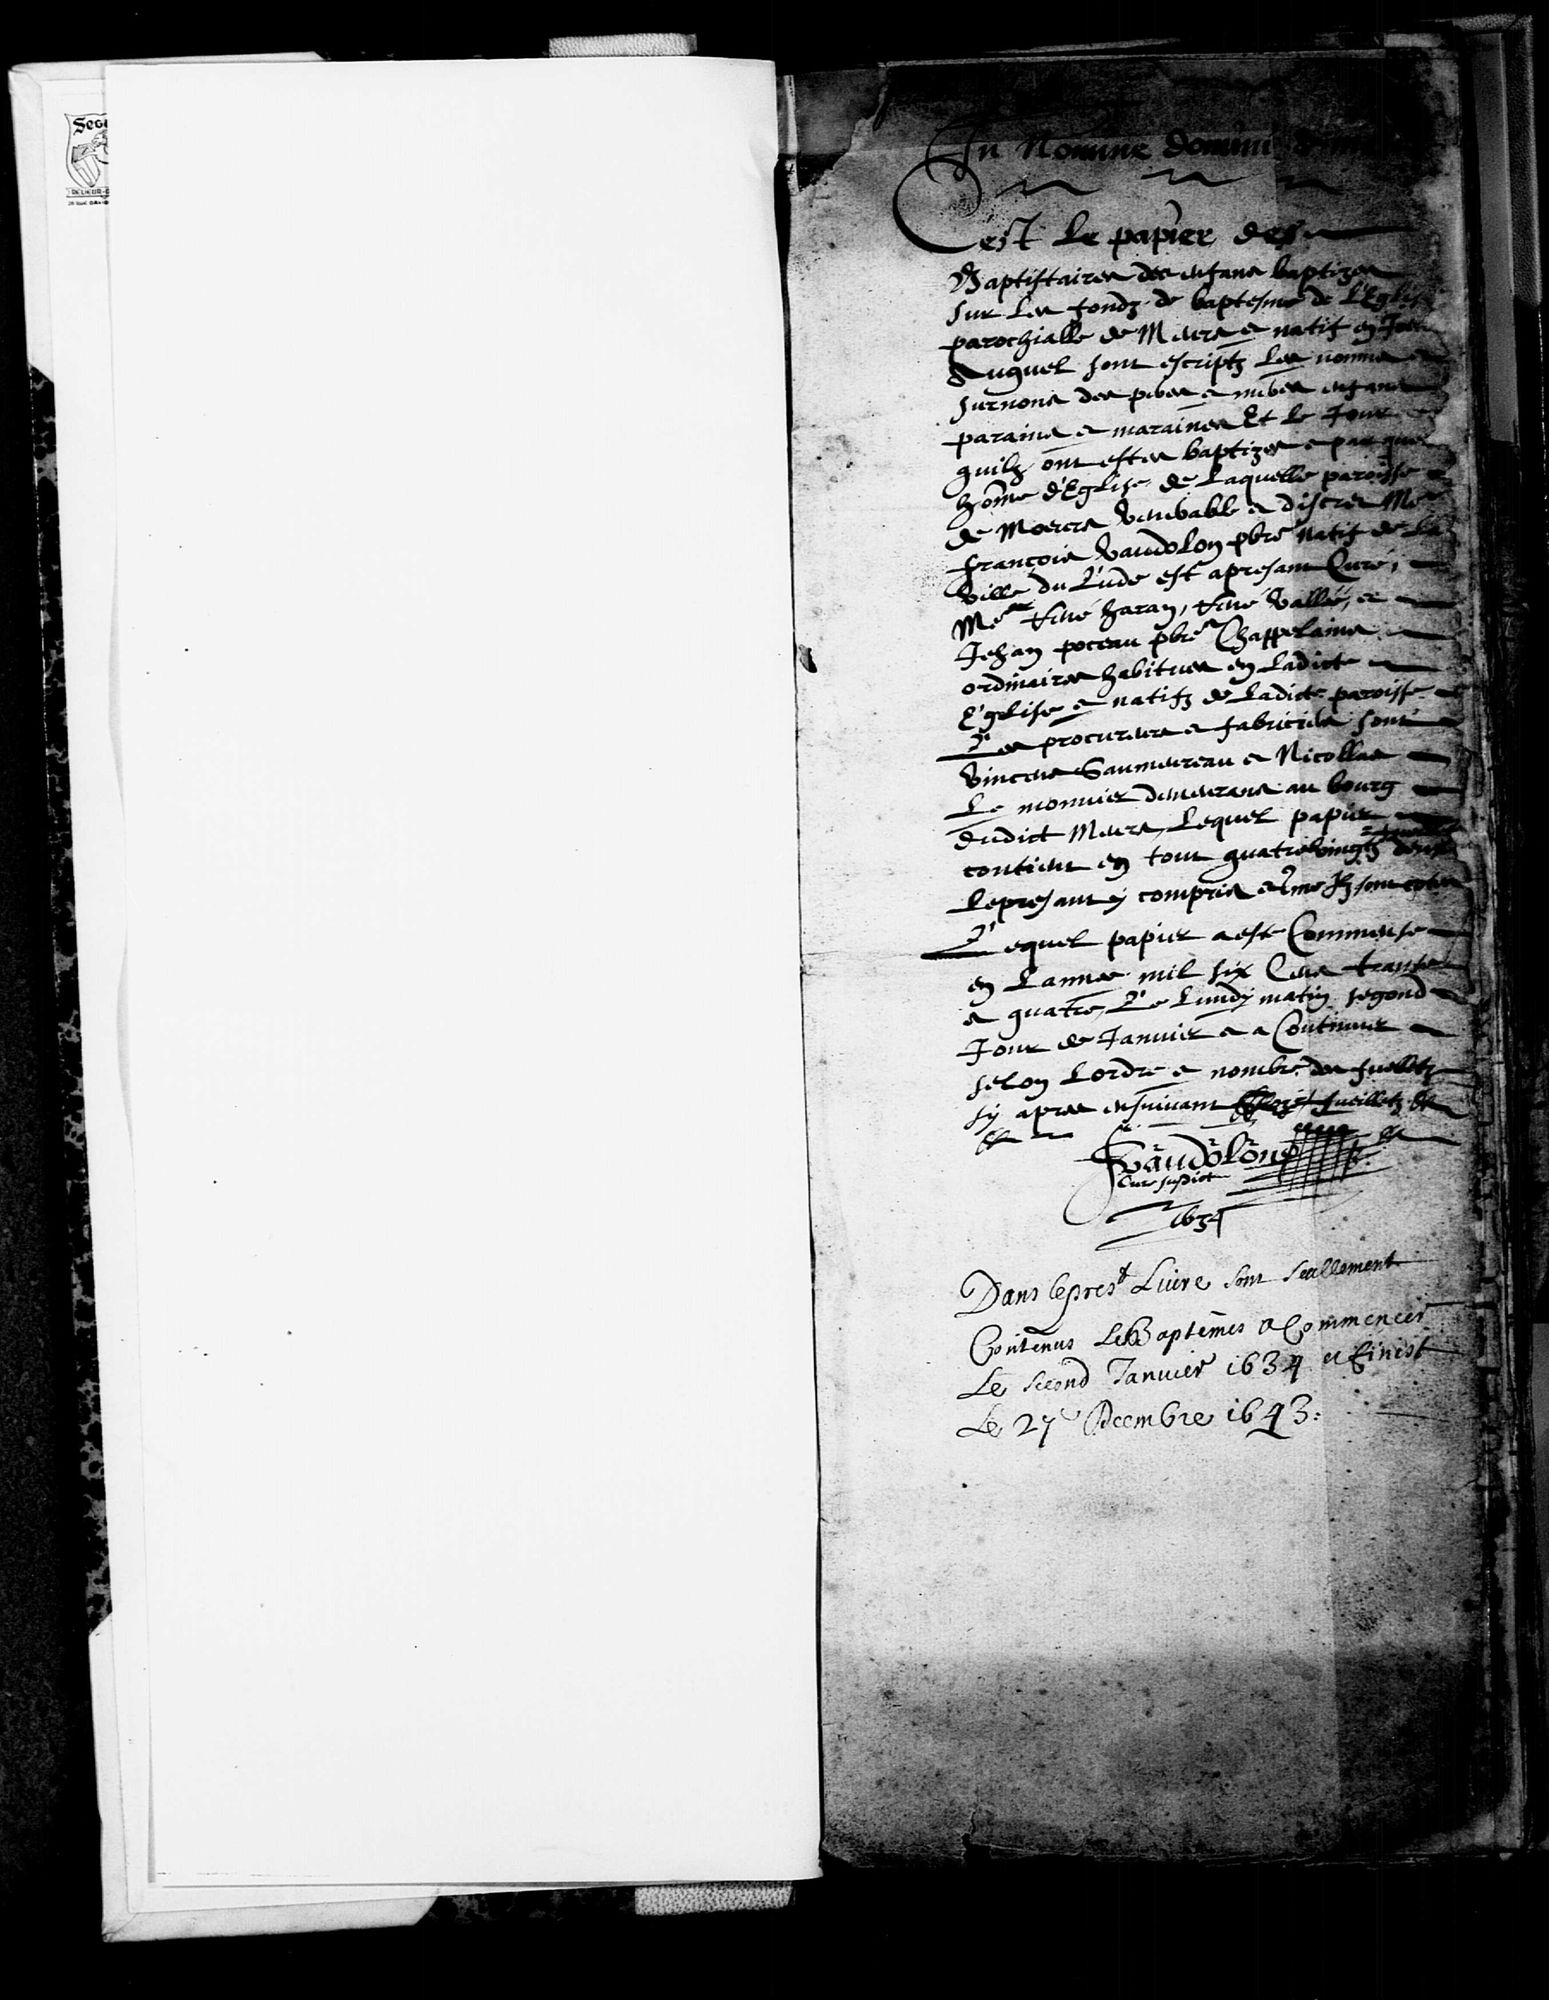 Sego
RELIEUR-D
In Nomine domini Amen
Cest Le papier des
Baptistaires des enfans baptizes
sur Les fondz de baptesme de L'Eglise
parochialle de Meurs et natifz en
Auquel sont escriptz Les noms et
surnons des peres et meres enfans
parains et maraines Et le Jour
quilz ont estes baptizes et par quel
hôme d'Eglise. de Laquelle paroisse
de Moeurs venerable et discret Me
françois Vaudolon pbre natif de La
Ville du Lude est apresant Curé,
Me René haran, René Vallée, et
Jehan poceau pbre Chappelains
ordinaires habitues en Ladicte
Eglise et natifz de Ladicte paroisse
Les procureurs et fabriciers sont
Vincent Saumureau et Nicollas
Le monnier demeurans au bourg
dudict Meurs, Lequel papier
contient en tout quatrevingtz deux
Lepresant y compris
Lequel papier a este Commense
en Lannee mil six Cens trante
et quatre, Le Lundy matin segond
Jour de Janvier et a Continuer
selon Lordre et nombre des fuelletz
sy apres ensuivant fueilletz &
Vaudolon
Cure susdict
1634
Dans le prest Livre sont seullement
Contenus Les Baptêmes a Commencer
Le second Janvier 1634 et finist
Le 27e Decembre 1643: